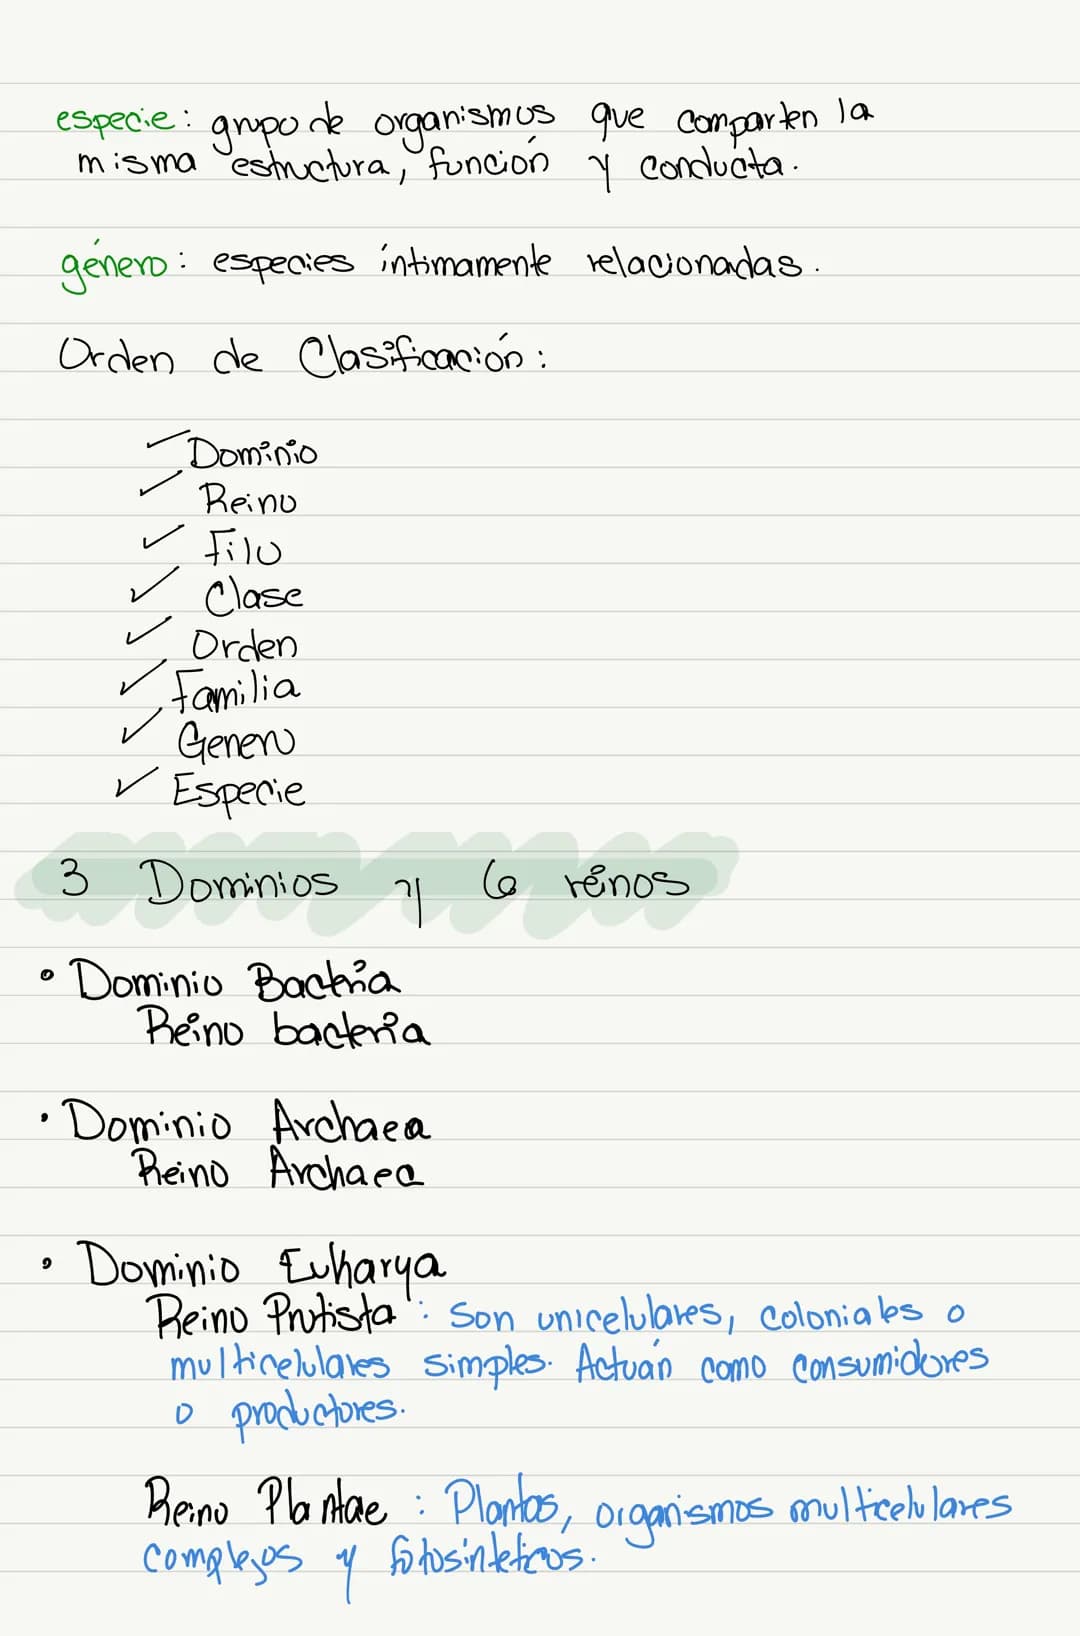 especie: grupo de organismos que comparten la
misma estructura, función y conducta.
género: especies íntimamente relacionadas.
Orden de Clasificación:
Dominio
Reino
Filo
Clase
Orden
Familia
Genero
Especie
3 Dominios y 6 reinos
• Dominio Bactria
Reino bacteria
• Dominio Archaea
Reino Archaea
• Dominio Eukarya
Reino Protista: Son unicelulares, coloniales o
multicelulares simples. Actuán como consumidores
o productores.
Reino Plantae: Plantas, organismos multicelulares
complejos y fotosinteticos.